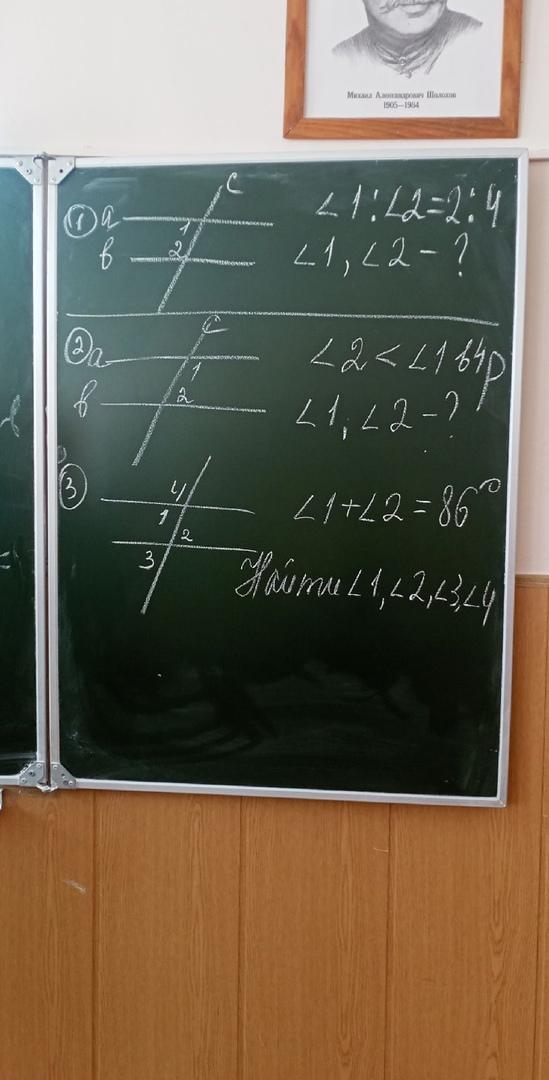 Михаил Александрович Шолохов
1905—1984
① a c ∠1:∠2=2:4
1
в 2 ∠1, ∠2 - ?
② a c ∠2 < ∠1 в 4 р
1
в 2 ∠1, ∠2 - ?
③ 4
1 ∠1+∠2 = 86°
2
3 Найти ∠1, ∠2, ∠3, ∠4